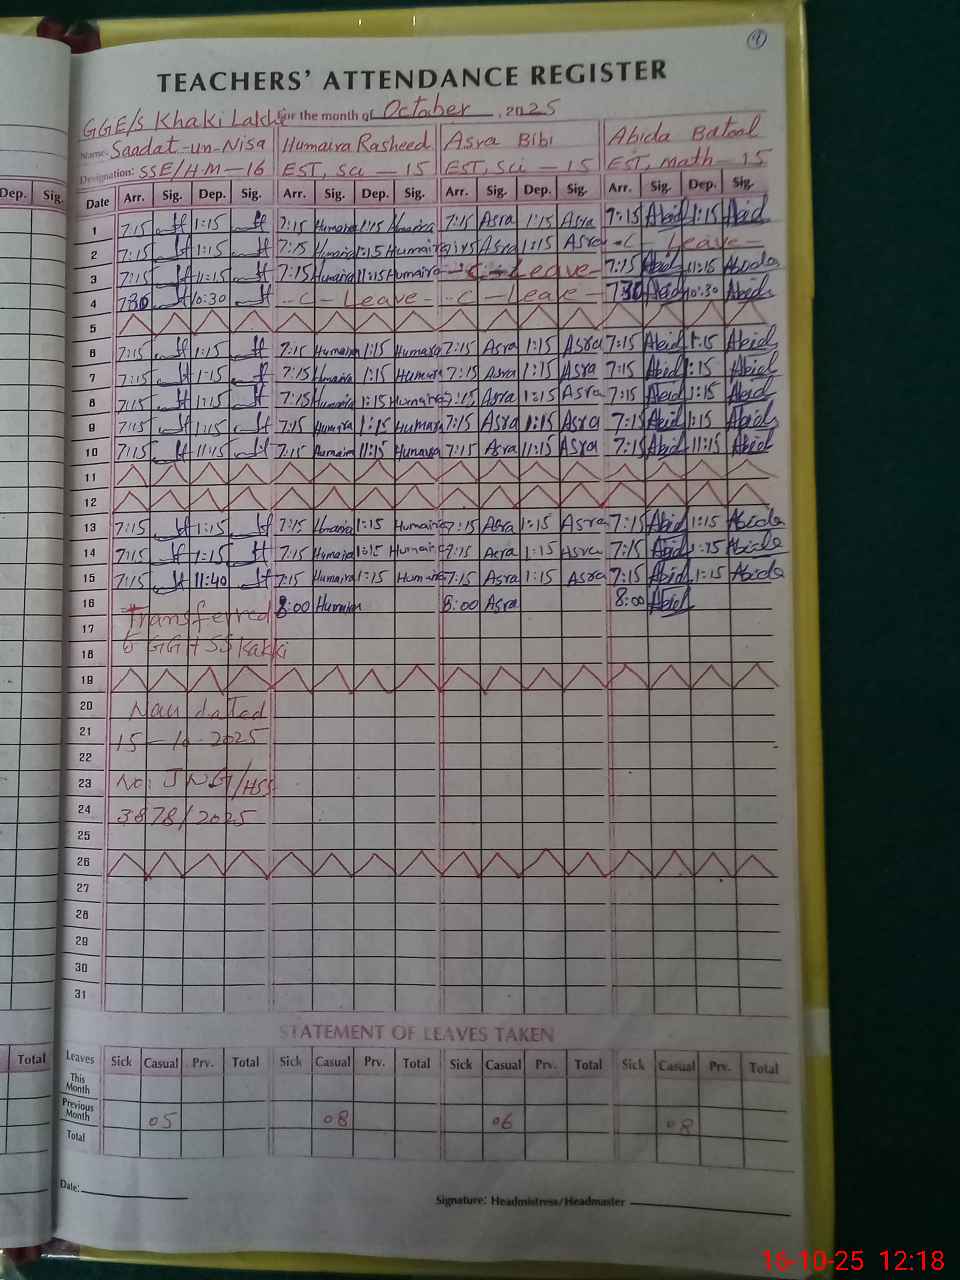 TEACHERS' ATTENDANCE REGISTER
GGE/S Khaki Lakhi for the month of October, 2025
Name: Saadat-un-Nisa Humaira Rasheed Asra Bibi Abida Batool
Designation: SSE/HM-16 EST, Sci - 15 EST, Sci - 15 EST, math - 15
Dep. Sig. Date Arr. Sig. Dep. Sig. Arr. Sig. Dep. Sig. Arr. Sig. Dep. Sig. Arr. Sig. Dep. Sig.
1 7:15 1:15 7:15 Humaira 1:15 Humaira 7:15 Asra 1:15 Asra 7:15 Abid 1:15 Abid
2 7:15 1:15 7:15 Humaira 1:15 Humaira Asra 1:15 Asra - C - Leave -
3 7:15 11:15 7:15 Humaira 11:15 Humaira - C - Leave - 7:15 Abid 11:15 Abida
4 7:30 10:30 - C - Leave - - C - Leave - 7:30 Abid 10:30 Abid
5
6 7:15 1:15 7:15 Humaira 1:15 Humaira 7:15 Asra 1:15 Asra 7:15 Abid 1:15 Abid
7 7:15 1:15 7:15 Humaira 1:15 Humaira 7:15 Asra 1:15 Asra 7:15 Abid 1:15 Abid
8 7:15 1:15 7:15 Humaira 1:15 Humaira 7:15 Asra 1:15 Asra 7:15 Abid 1:15 Abid
9 7:15 1:15 7:15 Humaira 1:15 Humaira 7:15 Asra 1:15 Asra 7:15 Abid 1:15 Abid
10 7:15 11:15 7:15 Humaira 11:15 Humaira 7:15 Asra 11:15 Asra 7:15 Abid 11:15 Abid
11
12
13 7:15 1:15 7:15 Humaira 1:15 Humaira 7:15 Asra 1:15 Asra 7:15 Abid 1:15 Abida
14 7:15 1:15 7:15 Humaira 1:15 Humaira 7:15 Asra 1:15 Asra 7:15 Abid 1:15 Abida
15 7:15 11:40 7:15 Humaira 1:15 Humaira 7:15 Asra 1:15 Asra 7:15 Abid 1:15 Abida
16 Transferred 8:00 Humaira 8:00 Asra 8:00 Abid
17
18 to GGHSS Kakki
19
20 dated
21 15-10-2025
22
23 No: JNG/HSS
24 3878/2025
25
26
27
28
29
30
31
STATEMENT OF LEAVES TAKEN
Total Leaves Sick Casual Prv. Total Sick Casual Prv. Total Sick Casual Prv. Total Sick Casual Prv. Total
This Month
Previous Month 05 08 06 08
Total
Date:
Signature: Headmistress/Headmaster
16-10-25 12:18